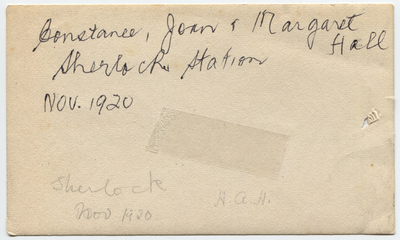 Constance, Joan & Margaret
Hall
Sherlock Station
NOV. 1920
Sherlock
Nov 1920
H.A.H.